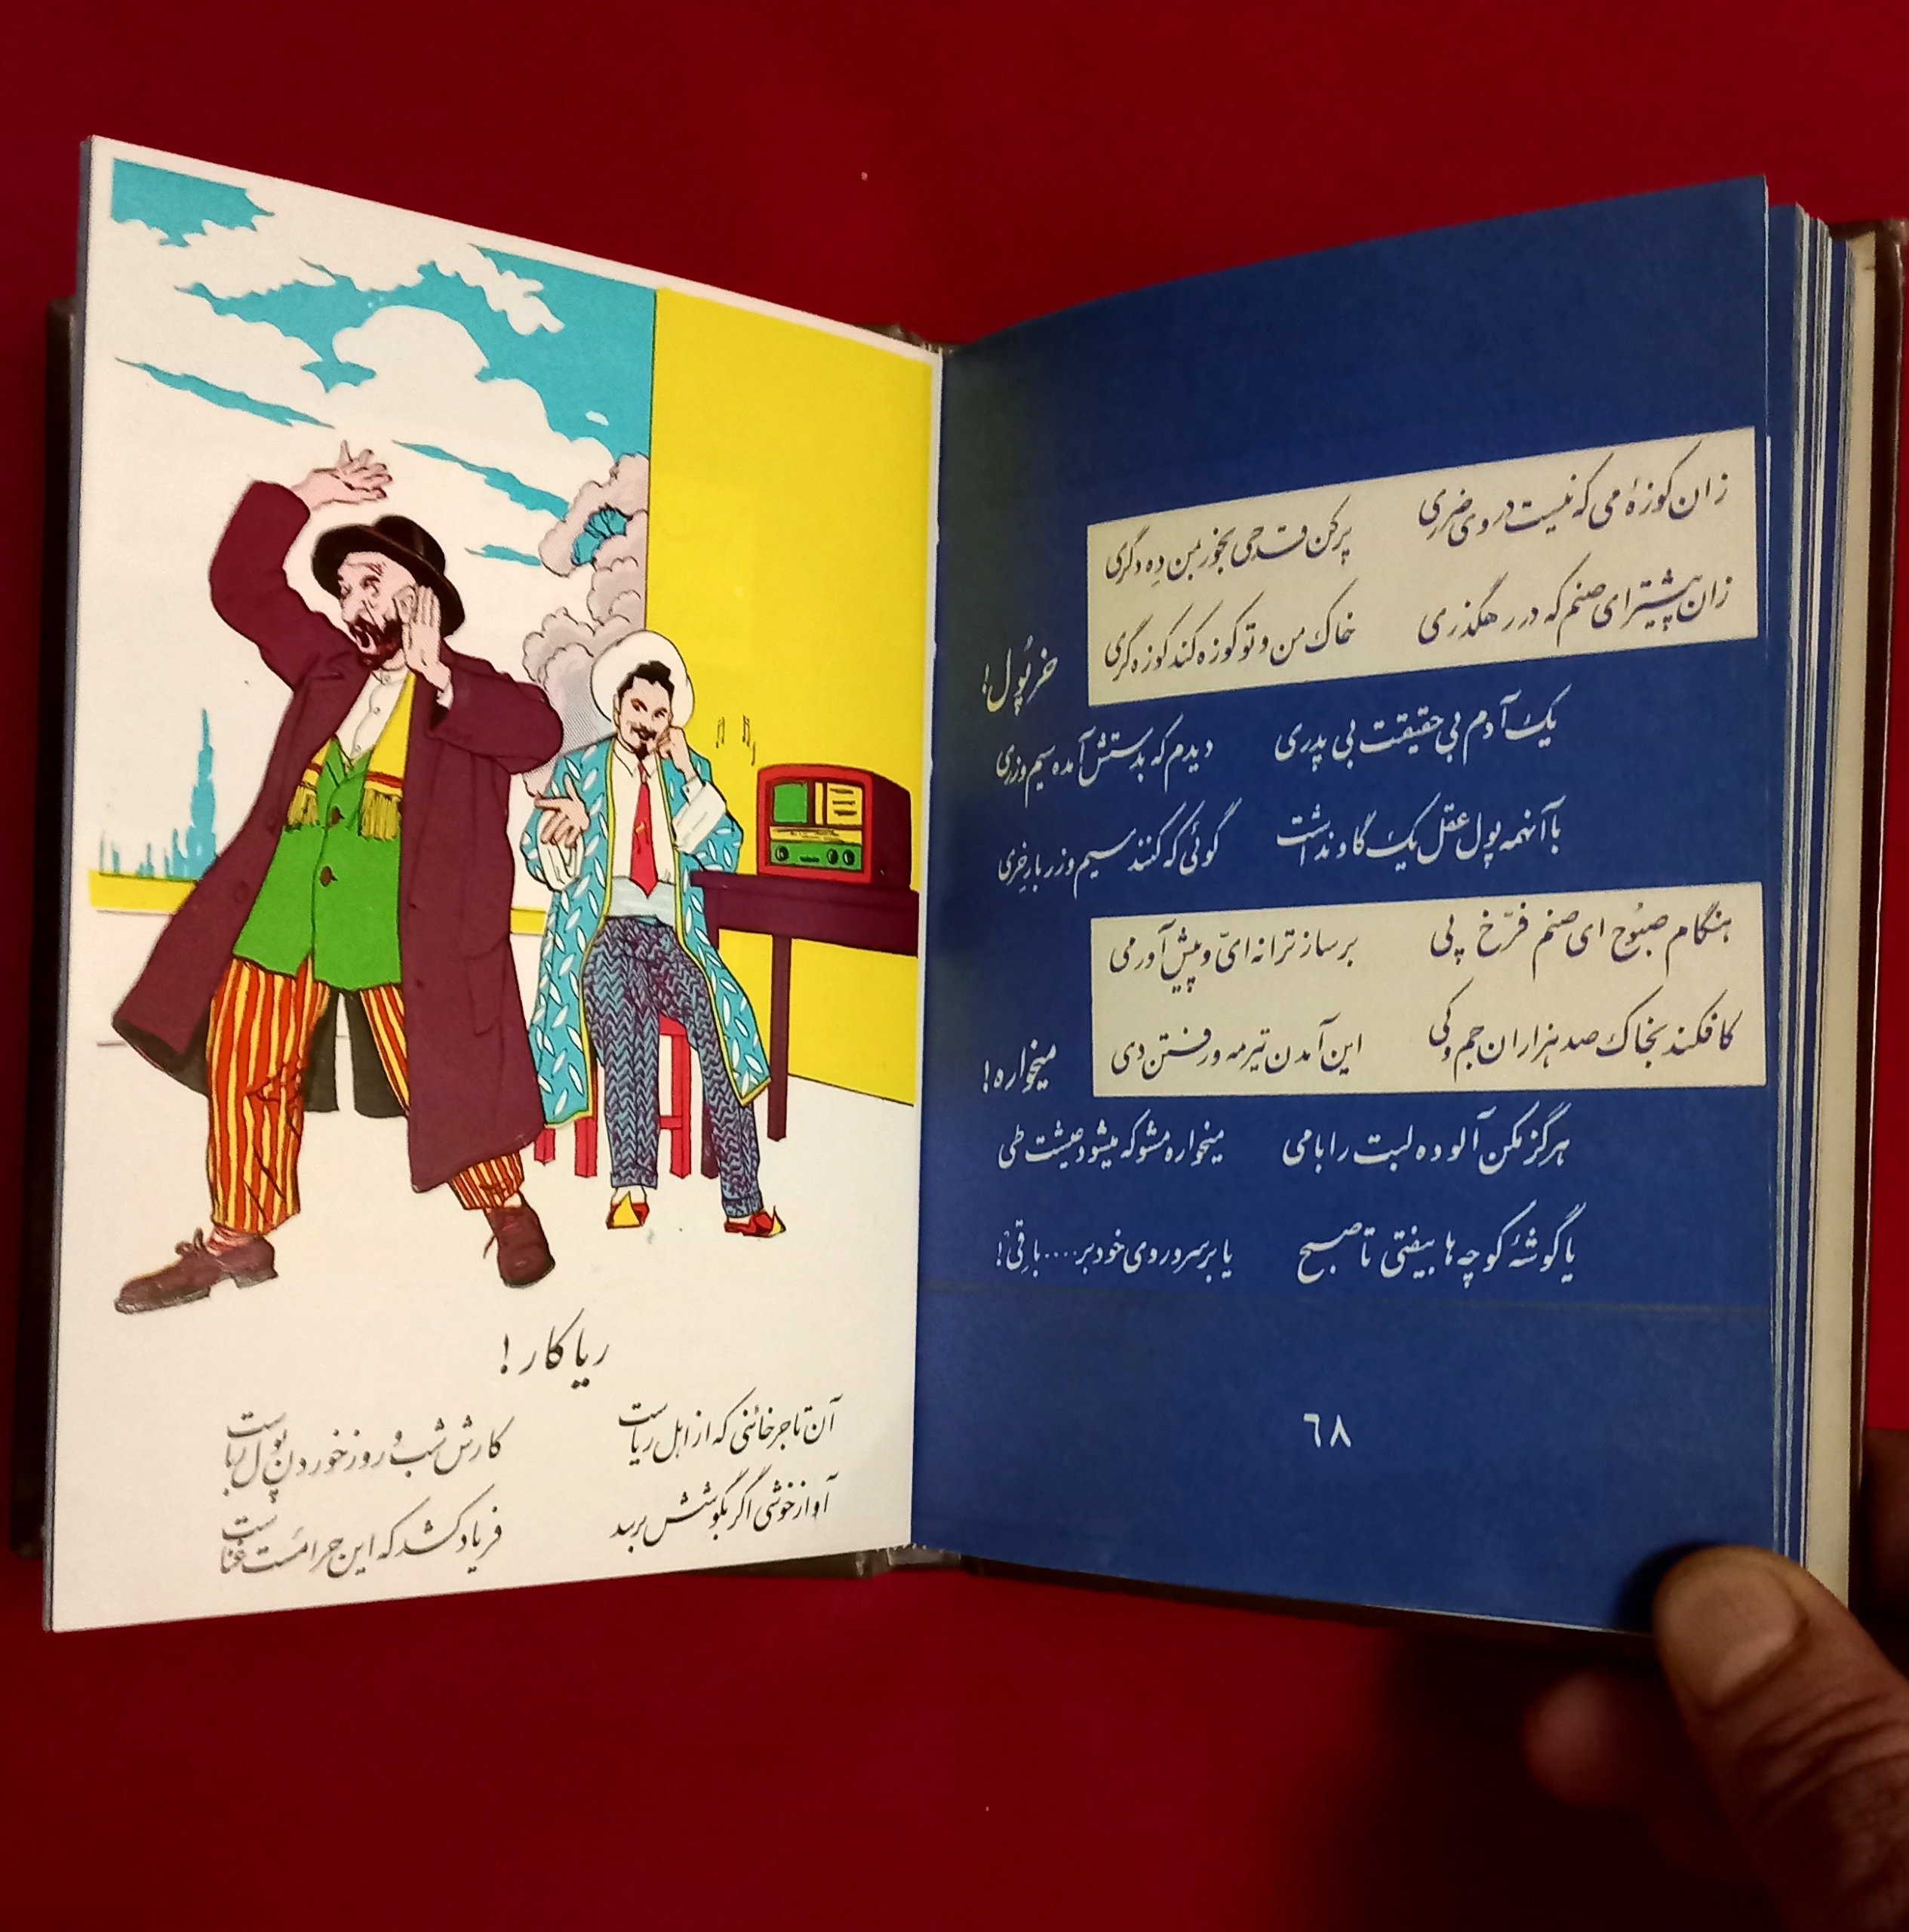 زان کوزهٔ می که نیست در وی ضرری پر کن قدحی بخور بمن ده دگری
زان پیشتر ای صنم که در رهگذری خاک من و تو کوزه کند کوزه گری
خر پُول!
یک آدم بی حقیقت بی پدری دیدم که بدستش آمده سیم و زری
با آنهمه پول عقل یک گاو نداشت گوئی که کنند سیم و زر بار خری
هنگام صبُوح ای صنم فرّخ پی بر ساز ترانه ایّ و پیش آور می
کافکند بخاک صد هزاران جم و کی این آمدن تیر مه و رفتن دی
میخواره!
هرگز مکن آلوده لبت را با می میخواره مشو که میشود عیشت طی
یا گوشهٔ کوچه ها بیفتی تا صبح یا بر سر و روی خود بر .... باقی!
٦٨
ریاکار!
آن تاجر خائنی که از اهل ریاست کارش شب و روز خوردن پول رباست
آواز خوشی اگر بگوشش برسد فریاد کشد که این حرامست غناست